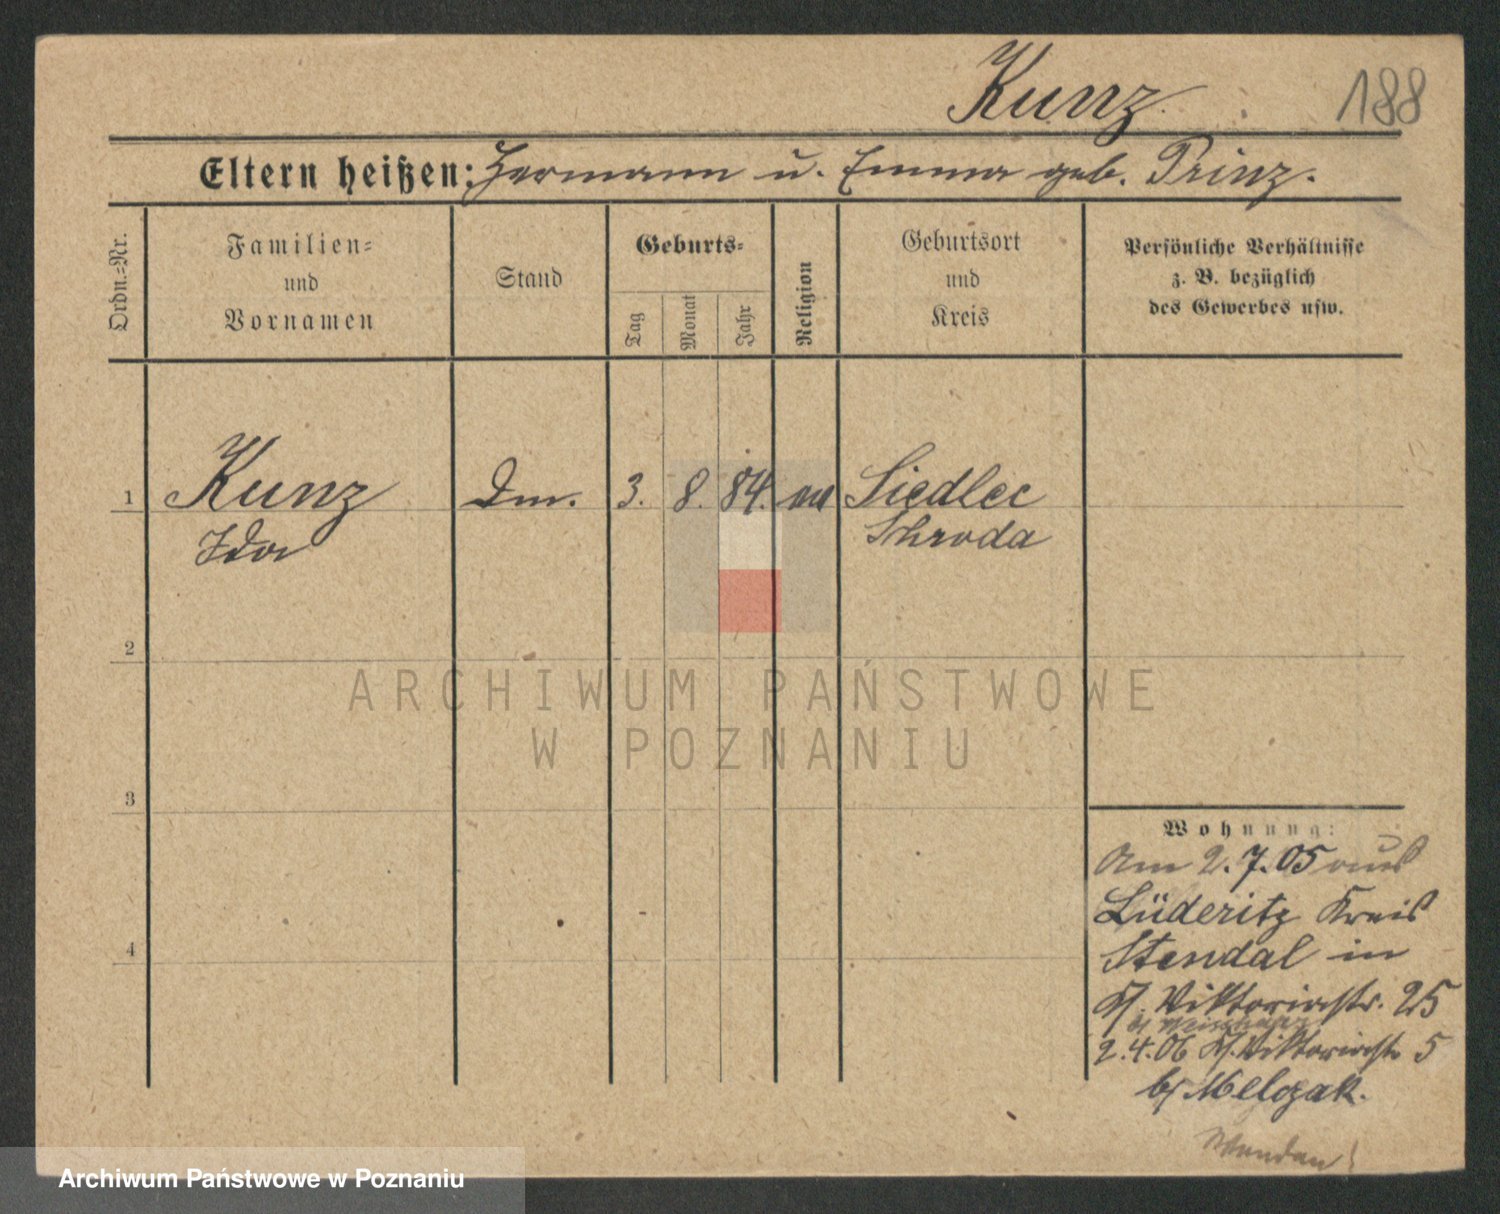 Kunz
188
Eltern heißen: Hermann u. Emma geb. Prinz.
Ordn.=Nr.
Familien=
und
Vornamen
Stand
Geburts=
Tag
Monat
Jahr
Religion
Geburtsort
und
Kreis
Persönliche Verhältnisse
z. B. bezüglich
des Gewerbes usw.
1 Kunz Dm. 3. 8. 84. Siedlec
Ida Schroda
2
3
4
Wohnung:
Am 2.7.05 aus
Lüderitz Kreis
Stendal in
Viktoriastr. 25
2.4.06 Viktoriastr 5
b/ Melczak.
Wenden!
ARCHIWUM PAŃSTWOWE
W POZNANIU
Archiwum Państwowe w Poznaniu